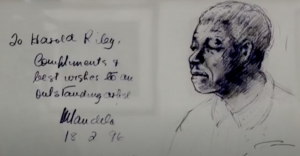 To Harold Riley.
Compliments &
best wishes to an
outstanding artist
Mandela
18 2 96